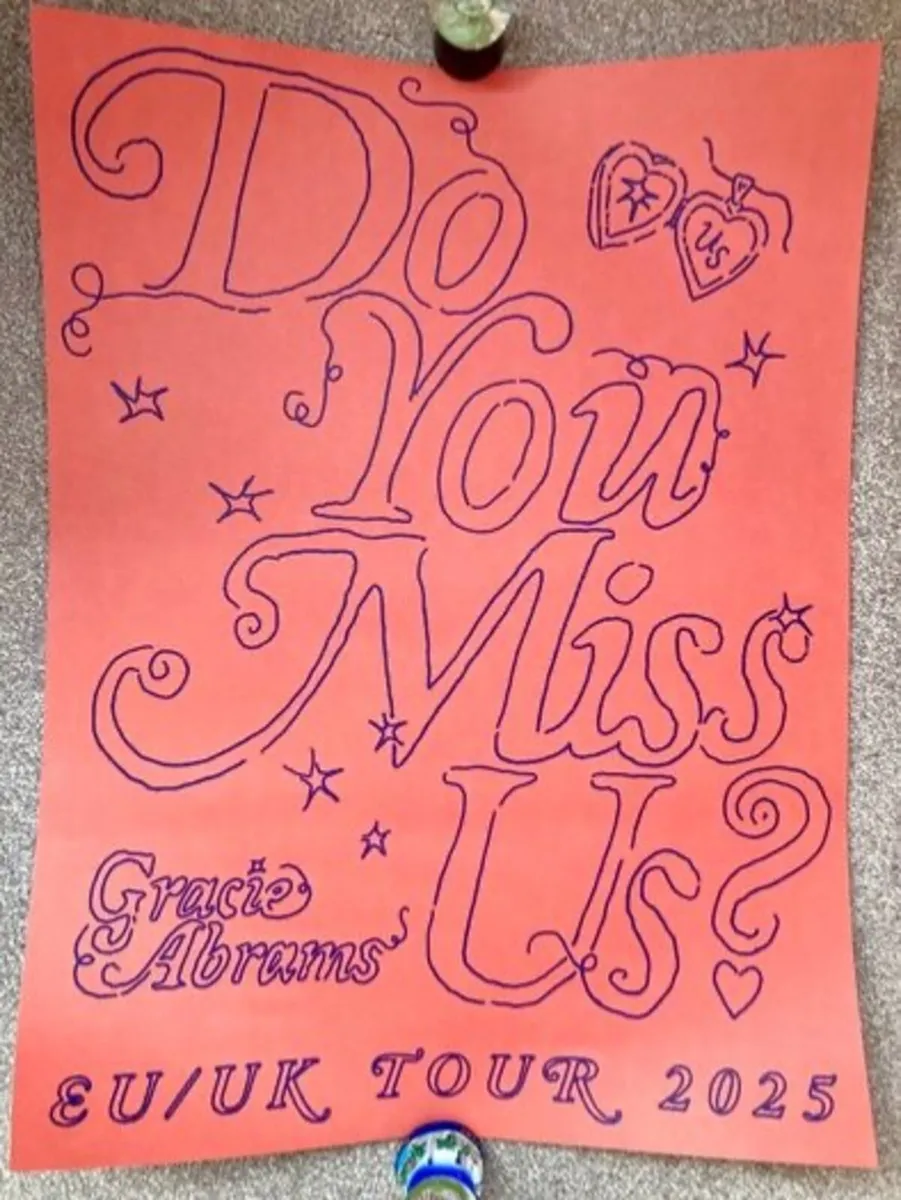 Do
Us
You
Miss
Us?
Gracie
Abrams
EU/UK TOUR 2025